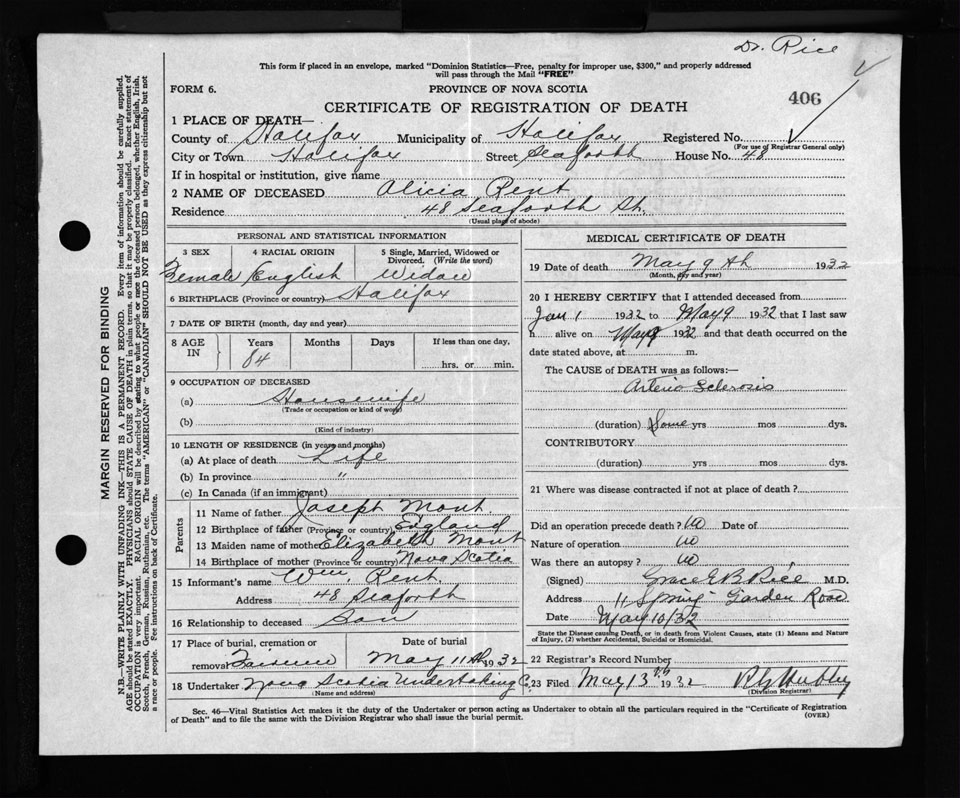 Dr. Rice
This form if placed in an envelope, marked "Dominion Statistics—Free, penalty for improper use, $300," and properly addressed
will pass through the Mail "FREE"
FORM 6.
PROVINCE OF NOVA SCOTIA
406
CERTIFICATE OF REGISTRATION OF DEATH
1 PLACE OF DEATH—
County of Halifax Municipality of Halifax Registered No.
(For use of Registrar General only)
City or Town Halifax Street Seaforth House No. 48
If in hospital or institution, give name
2 NAME OF DECEASED Alicia Rent
Residence 48 Seaforth St.
(Usual place of abode)
PERSONAL AND STATISTICAL INFORMATION
3 SEX
Female
4 RACIAL ORIGIN
English
5 Single, Married, Widowed or
Divorced. (Write the word)
Widow
6 BIRTHPLACE (Province or country) Halifax
7 DATE OF BIRTH (month, day and year)
8 AGE
IN
Years
84
Months
Days
If less than one day,
hrs. or min.
9 OCCUPATION OF DECEASED
(a) Housewife
(Trade or occupation or kind of work)
(b)
(Kind of industry)
10 LENGTH OF RESIDENCE (in years and months)
(a) At place of death Life
(b) In province "
(c) In Canada (if an immigrant)
Parents
11 Name of father Joseph Mont.
12 Birthplace of father (Province or country) England
13 Maiden name of mother Elizabeth Mont
14 Birthplace of mother (Province or country) Nova Scotia
15 Informant's name Wm. Rent.
Address 48 Seaforth
16 Relationship to deceased Son
17 Place of burial, cremation or
removal
Date of burial
May 11th 1932
18 Undertaker Nova Scotia Undertaking Co.
(Name and address)
MEDICAL CERTIFICATE OF DEATH
19 Date of death May 9th 1932
(Month, day and year)
20 I HEREBY CERTIFY that I attended deceased from
Jan 1 1932 to May 9 1932 that I last saw
h alive on May 9 1932 and that death occurred on the
date stated above, at m.
The CAUSE of DEATH was as follows:—
Arterio Sclerosis
(duration) Some yrs mos dys.
CONTRIBUTORY
(duration) yrs mos dys.
21 Where was disease contracted if not at place of death?
Did an operation precede death? no Date of
Nature of operation no
Was there an autopsy? no
(Signed) Grace E B Rice M.D.
Address 11 Spring Garden Road
Date May 10/32
State the Disease causing Death, or in death from Violent Causes, state (1) Means and Nature
of Injury, (2) whether Accidental, Suicidal or Homicidal.
22 Registrar's Record Number
23 Filed May 13th 1932
(Division Registrar)
Sec. 46—Vital Statistics Act makes it the duty of the Undertaker or person acting as Undertaker to obtain all the particulars required in the "Certificate of Registration
of Death" and to file the same with the Division Registrar who shall issue the burial permit.
(OVER)
MARGIN RESERVED FOR BINDING
N.B.—WRITE PLAINLY WITH UNFADING INK—THIS IS A PERMANENT RECORD. Every item of information should be carefully supplied.
AGE should be stated EXACTLY. PHYSICIANS should STATE CAUSE OF DEATH in plain terms, so that it may be properly classified. Exact statement of
OCCUPATION is very important. RACIAL ORIGIN will be described by stating to what people or race the deceased person belonged, whether English, Irish,
Scotch, French, German, Russian, Ruthenian, etc. The terms "AMERICAN" or "CANADIAN" SHOULD NOT BE USED as they express citizenship but not
a race or people. See instructions on back of Certificate.